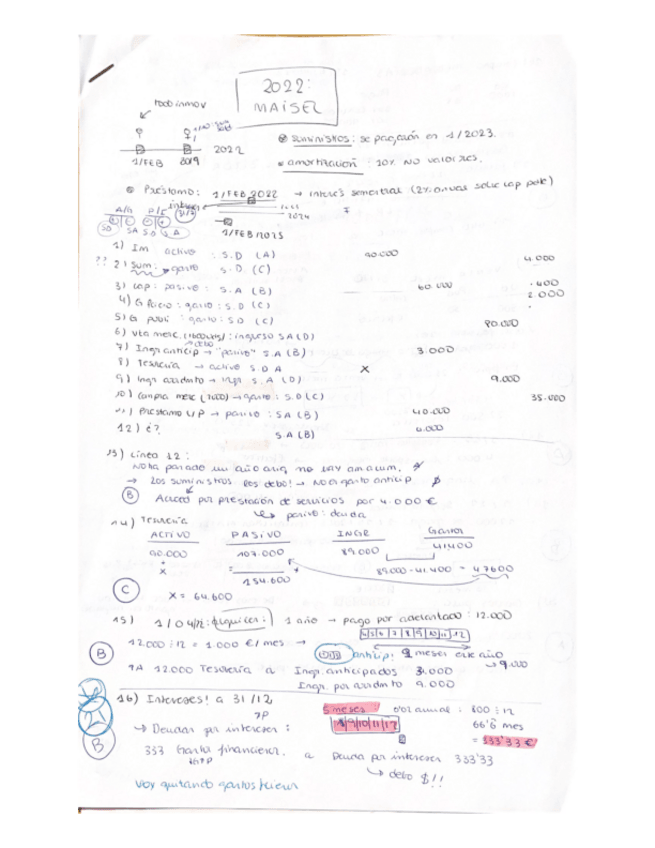 2022:
MAISEL
1/FEB 30/9 2022
suministros: se pagarán en 1/2023.
amortización: 10%. NO valores.
Préstamo: 1/FEB 2022 → interés semestral (2% anual sobre cap pdte)
intereses 31/7
2024
A/G P/I
SD SA SD SA
1/FEB/2025
1) Im activo : S.D (A) 90.000
?? 2) Sum: gasto S.D. (C) 4.000
3) cap: pasivo: S.A (B) 60.000
4) G : gasto: S.D (C) 400
5) G : gasto: SD (C) 2.000
6) vta merc (700) : ingreso SA(D) 80.000
7) Ingr anticip → "pasivo" S.A (B) 3.000
8) Tesorería → activo S.D A X
9) Ingr arrdmto → ingr S.A (D) 9.000
10) compra merc (600) → gasto: S.D(C) 35.000
11) Préstamo L/P → pasivo: SA (B) 40.000
12) ¿? S.A (B) 4.000
13) Línea 12:
No ha pasado un año aún, no hay amortizn.
→ Los suministros. Los debo! → NO es gasto anticip
B Acreed por prestación de servicios por 4.000 €
pasivo: deuda
14) Tesorería
ACTIVO PASIVO INGR Gastos
90.000 107.000 89.000 41.400
+ X = + 89.000 - 41.400 = 47600
154.600
C X = 64.600
15) 1/04/2: alquiler: 1 año → pago por adelantado: 12.000
4 5 6 7 8 9 10 11 12
12.000 : 12 = 1.000 €/mes →
B anticip! 9 meses este año → 9.000
12.000 Tesorería a Ingr. anticipados 3.000
Ingr. por arrdmto 9.000
16) Intereses! a 31/12 5 meses anual: 800 : 12
→ Deudas por intereses: 8/9/10/11/12 66'6 mes
= 333'33 €
B 333 Gasto financiero. a Deuda por intereses 333'33
debo $!!
Voy quitando gastos